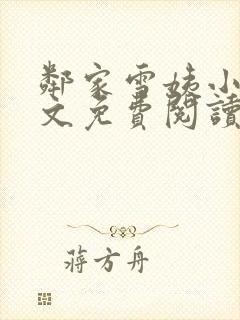 鄰家雪姨小
文免費閱讀
蔣方舟